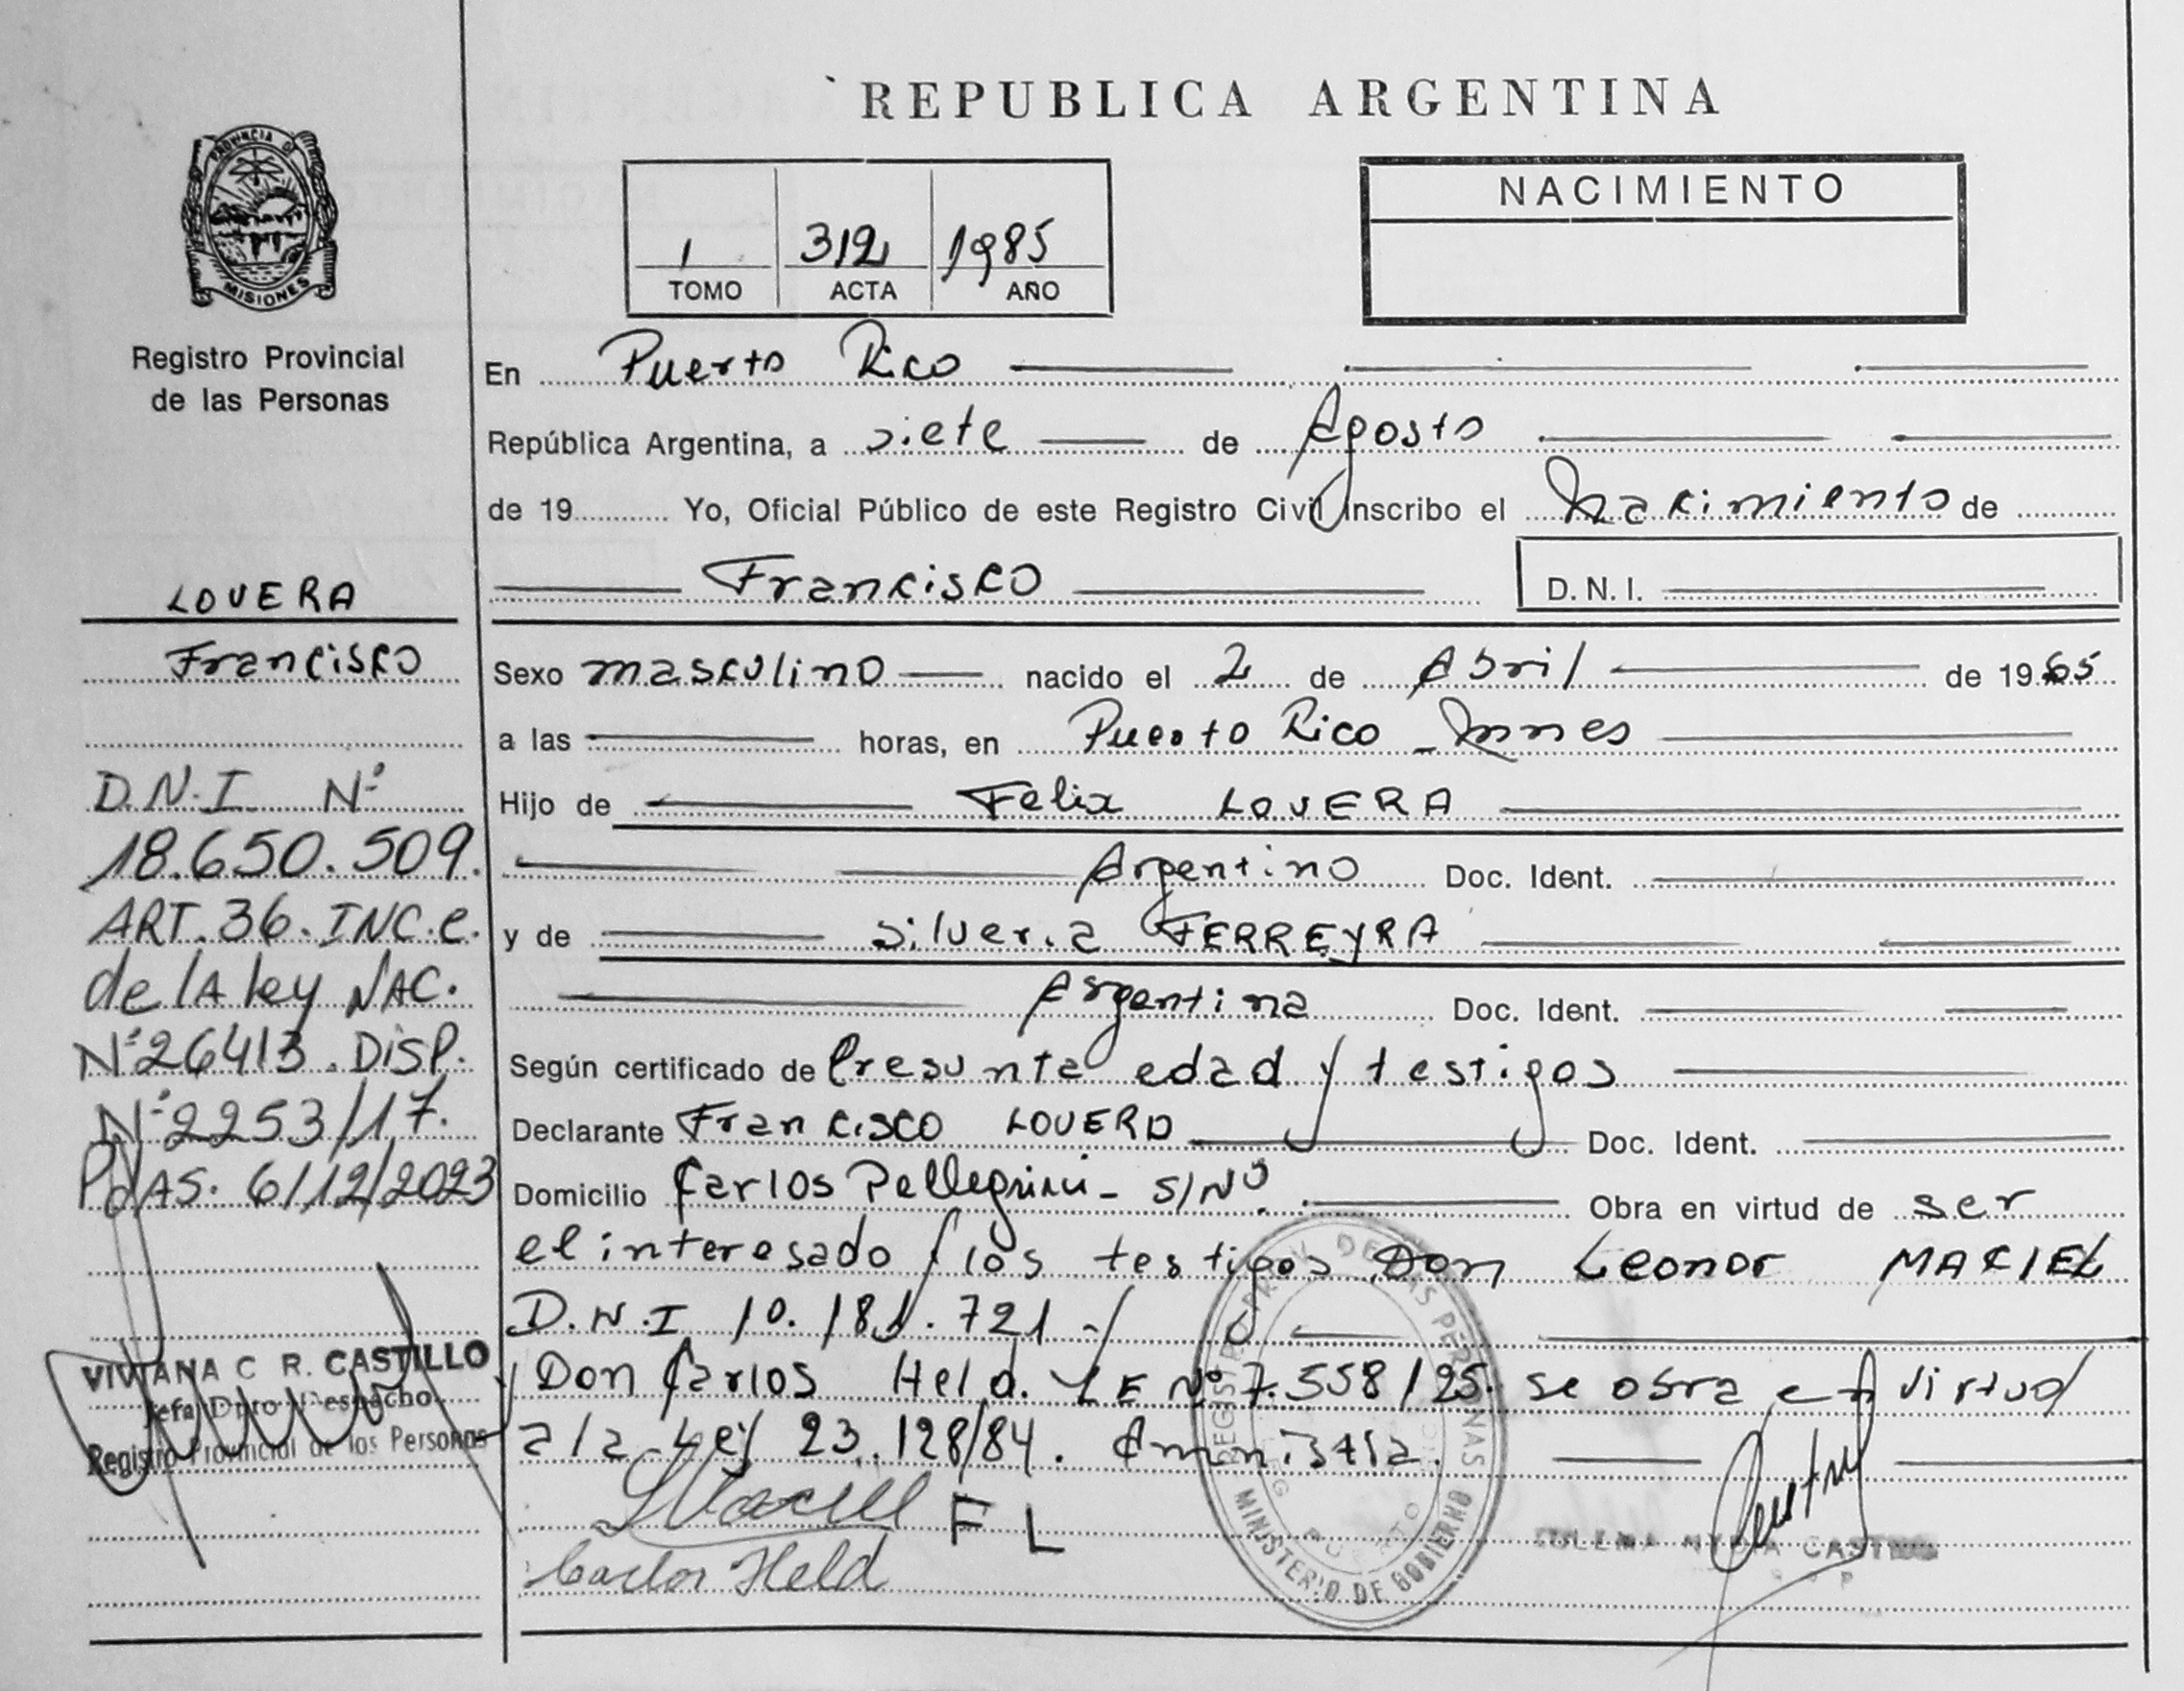 REPUBLICA ARGENTINA
PROVINCIA D
MISIONES
Registro Provincial
de las Personas
1 312 1985
TOMO ACTA AÑO
NACIMIENTO
En Puerto Rico
República Argentina, a siete de Agosto
de 19 Yo, Oficial Público de este Registro Civil inscribo el Nacimiento de
Francisco D.N.I.
LOVERA
Francisco
D.N.I Nº
18.650.509.
ART.36.INC.e.
de lA ley NAC.
Nº26413.DISP.
Nº2253/17.
PdAS. 6/12/2023
VIVIANA C R. CASTILLO
Jefa Dpto Despacho
Registro Provincial de los Personas
Sexo masculino nacido el 2 de Abril de 1965
a las horas, en Puerto Rico - Mnes
Hijo de Felix LOVERA
Argentino Doc. Ident.
y de Silveria FERREYRA
Argentina Doc. Ident.
Según certificado de Presunta edad y testigos
Declarante Francisco LOVERO Doc. Ident.
Domicilio Carlos Pellegrini - S/Nº. Obra en virtud de ser
el interesado y los testigos Don Leonor MACIEL
D.N.I 10.181.721 -
y Don Carlos Held. LE Nº 7.558125. se obra en virtud
a la Ley 23.128/84. Amnistia.
LMaciel F L
Carlos Held
REGISTRO PROV. DE LAS PERSONAS
MINISTERIO DE GOBIERNO
PUERTO RICO
CASTRO